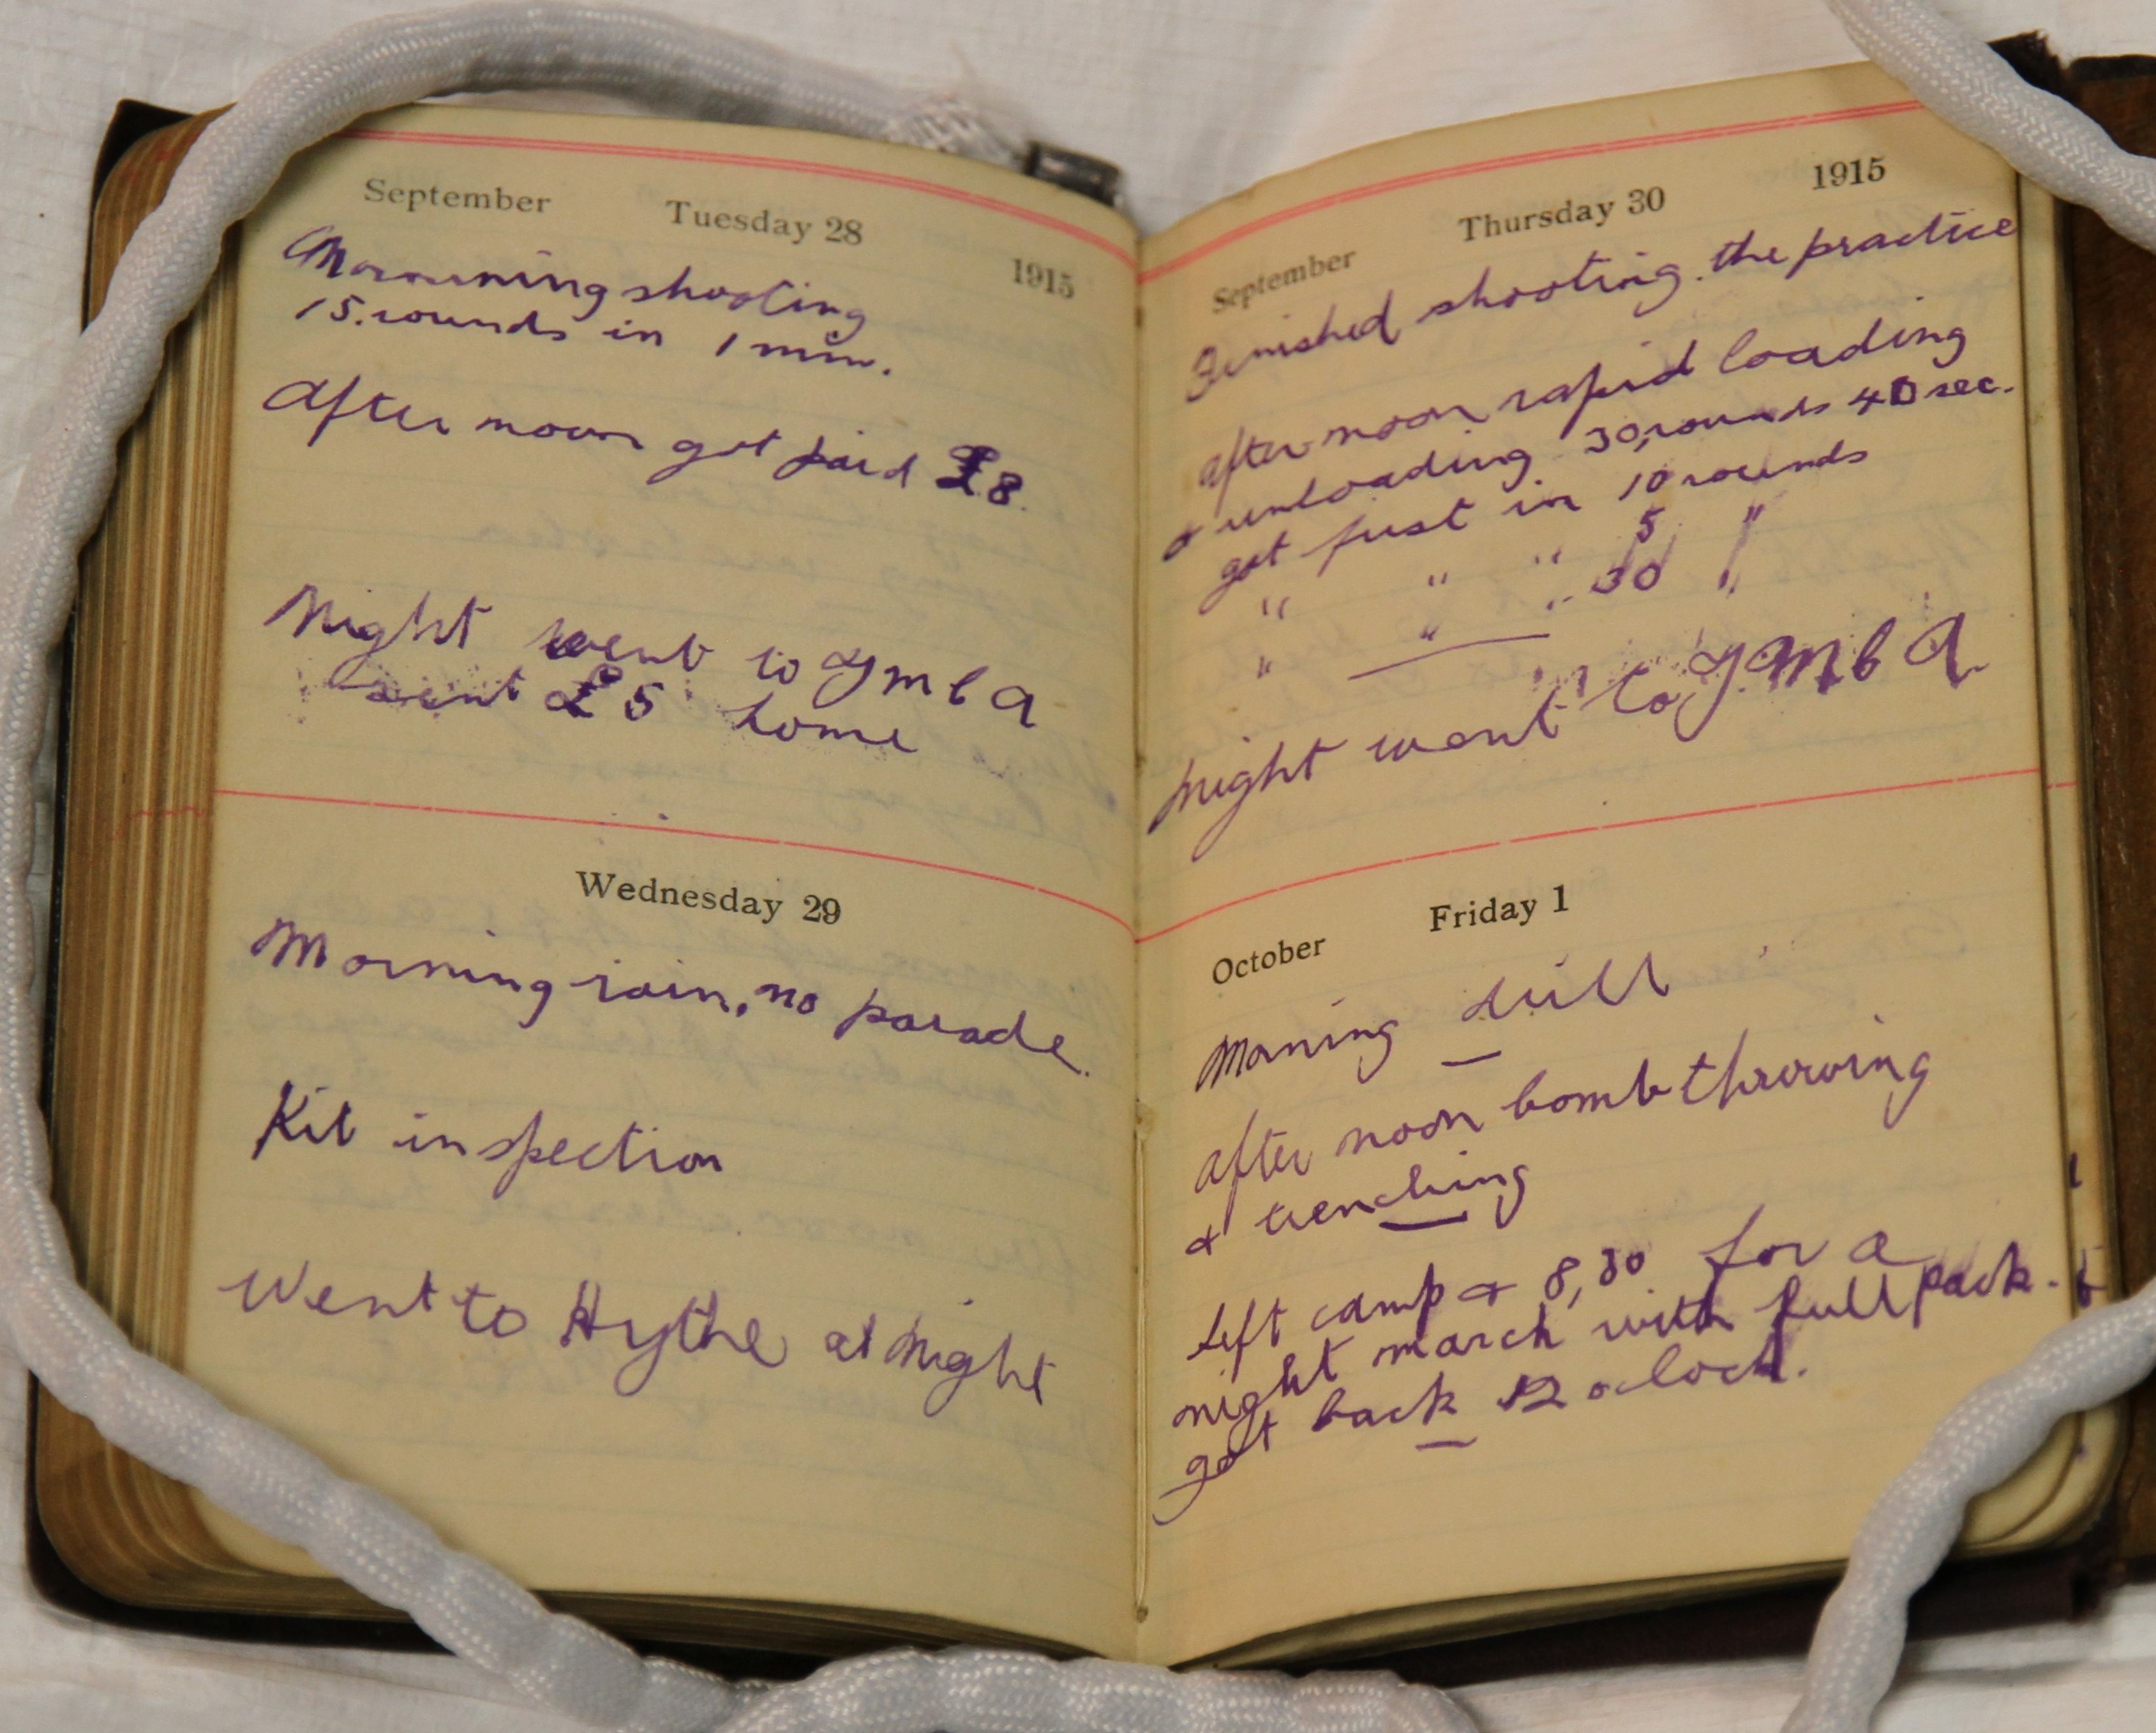 September Tuesday 28 1915
Mornning shooting
15 rounds in 1 min.
After noon got paid £8.
Night went to YMCA
sent £5 home
Wednesday 29
Morning rain, no parade.
Kit inspection
Went to Hythe at Night
September Thursday 30 1915
Finished shooting. the practice
after noon rapid loading
& unloading 30, rounds 40 sec.
got fust in 10 rounds
" " " 5 "
" " " 30 "
Night went to Y.MCA
October Friday 1
Morning drill
After noon bomb throwing
& trenching
Left camp & 8,30 for a
night march with full pack.
got back 12 oclock.